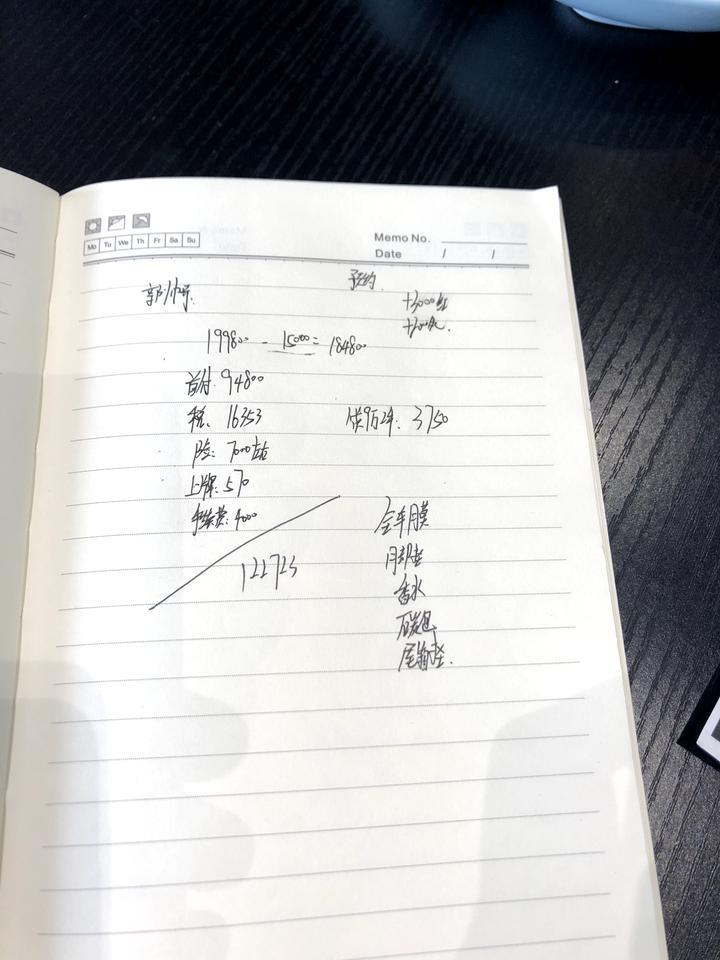 Mo Tu We Th Fr Sa Su
Memo No.
Date / /
预约
199800 - 15000 = 184800
首付: 94800
税: 16353
贷9万2年: 3750
险: 7000左右
上牌: 570
手续费: 4000
122723
全车膜
脚垫
香水
尾箱垫.